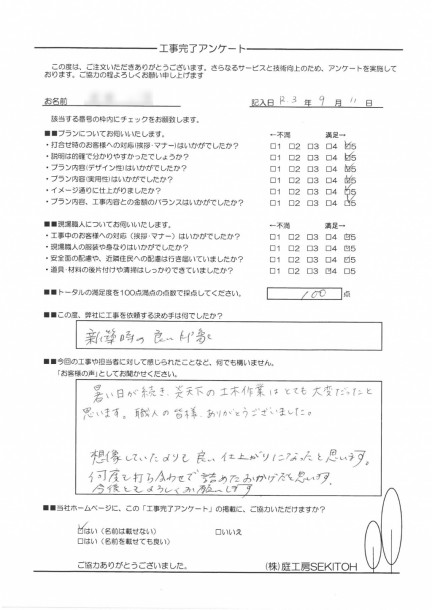 工事完了アンケート
この度は、ご注文いただきありがとうございます。さらなるサービスと技術向上のため、アンケートを実施して
おります。ご協力の程よろしくお願い申し上げます
お名前
記入日 R.3 年 9 月 11 日
該当する番号の枠内にチェックをお願致します。
■■プランについてお伺いいたします。 ←不満 満足→
・打合せ時のお客様への対応(挨拶・マナー)はいかがでしたか? □1 □2 □3 □4 ☑5
・説明は的確で分かりやすかったでしょうか? □1 □2 □3 □4 ☑5
・プラン内容(デザイン性)はいかがでしたか? □1 □2 □3 □4 ☑5
・プラン内容(実用性)はいかがでしたか? □1 □2 □3 □4 ☑5
・イメージ通りに仕上がりましたか? □1 □2 □3 □4 ☑5
・プラン内容、工事内容との金額のバランスはいかがでしたか? □1 □2 □3 □4 ☑5
■■現場職人についてお伺いいたします。 ←不満 満足→
・工事中のお客様への対応(挨拶・マナー)はいかがでしたか? □1 □2 □3 □4 ☑5
・現場職人の服装や身なりはいかがでしたか? □1 □2 □3 □4 ☑5
・安全面の配慮や、近隣住民への配慮は行き届いていましたか? □1 □2 □3 □4 ☑5
・道具・材料の後片付けや清掃はしっかりできていましたか? □1 □2 □3 ☑4 □5
■■トータルの満足度を100点満点の点数で採点してください。 100 点
■■この度、弊社に工事を依頼する決め手は何でしたか?
新築時の良い印象
■■今回の工事や担当者に対して感じられたことなど、何でも構いません。
「お客様の声」としてお聞かせください。
暑い日が続き、炎天下の土木作業はとても大変だったと
思います。職人の皆様、ありがとうございました。
想像していたよりも良い仕上がりになったと思います。
何度も打ち合わせで詰めたおかげだと思います。
今後ともよろしくお願いします
■■当社ホームページに、この「工事完了アンケート」の掲載に、ご協力いただけますか?
☑はい(名前は載せない) □いいえ
□はい(名前を載せても良い)
ご協力ありがとうございました。
(株)庭工房SEKITOH